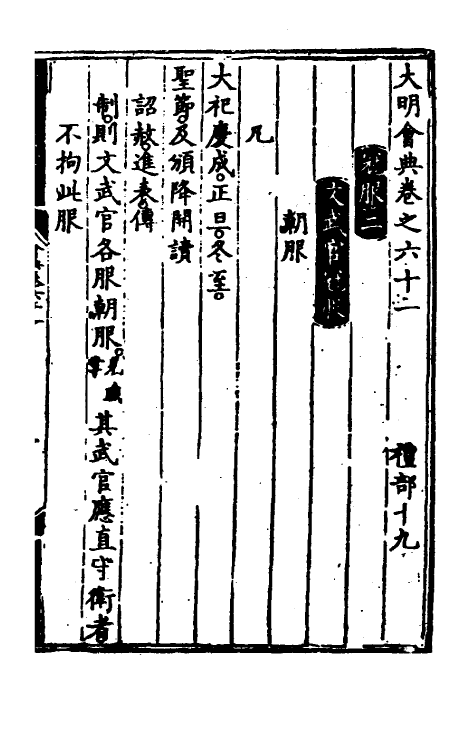 大明會典卷之六十二 禮部十九
冠服二
文武官冠服
朝服
凡
大祀慶成正旦冬至
聖節及頒降開讀
詔赦進表傳
制則文武官各服朝服 其武官應直守衛者
不拘此服